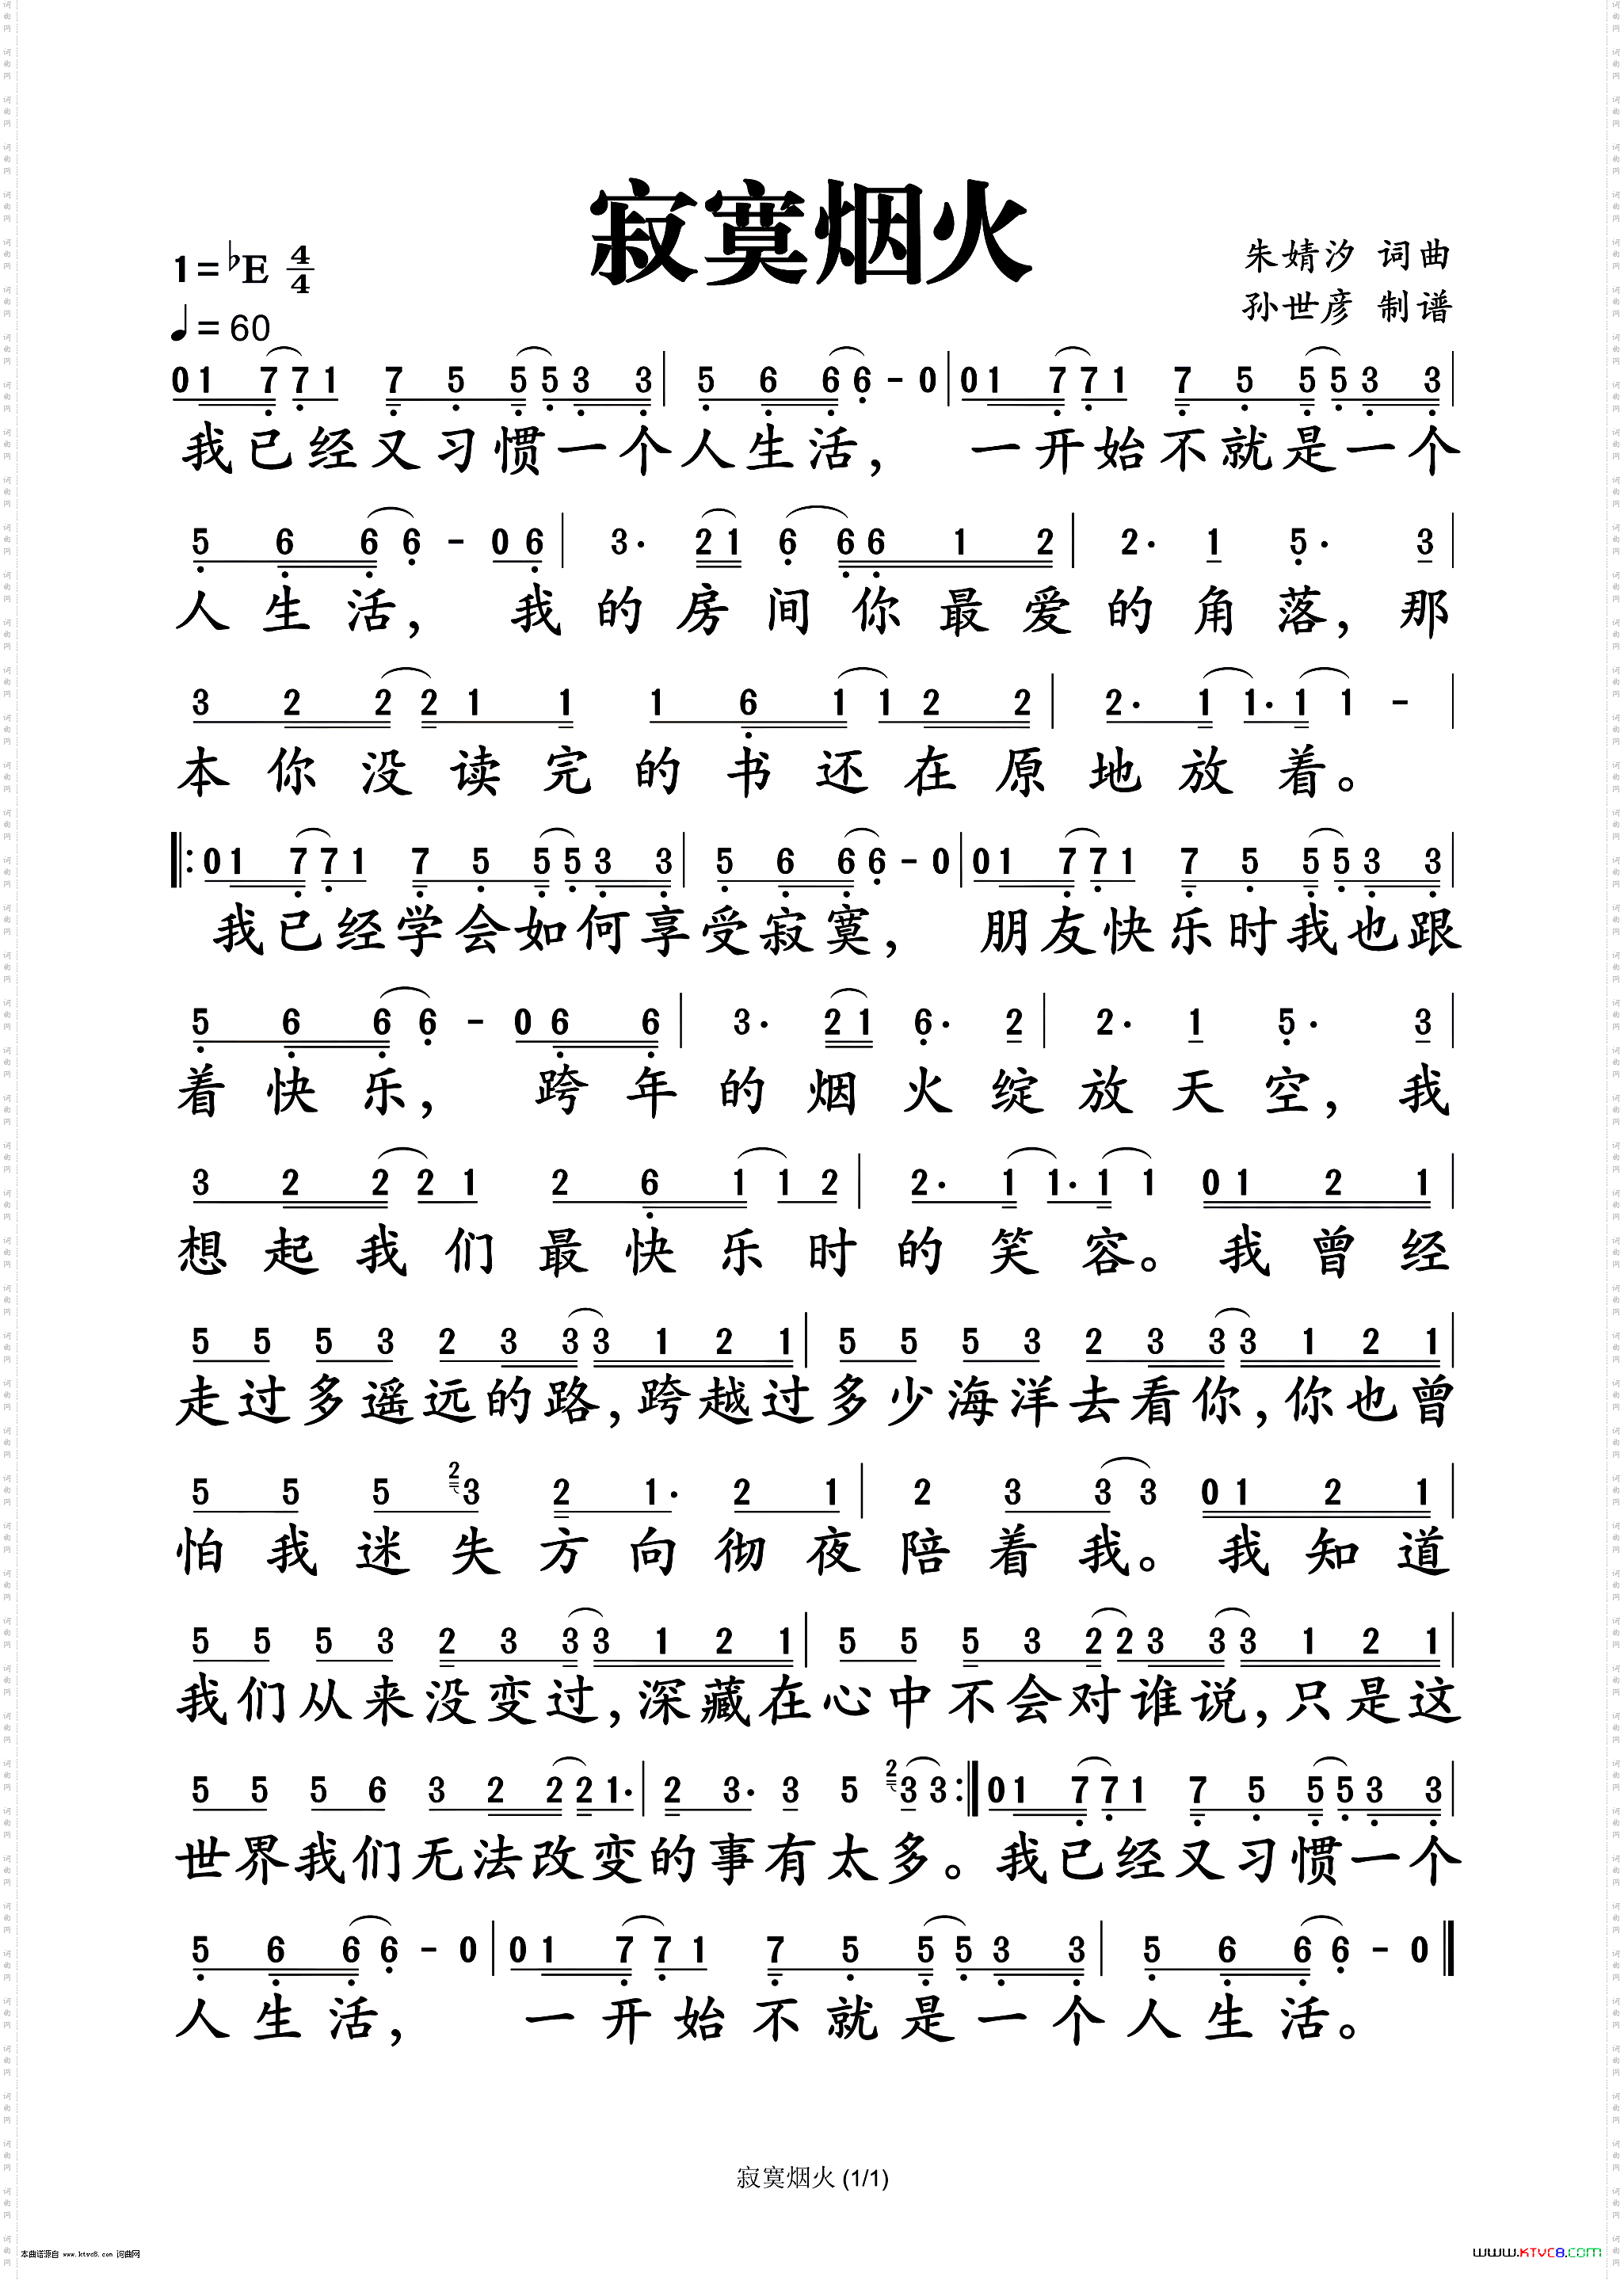 寂寞烟火
1=♭E 4/4
朱婧汐 词曲
孙世彦 制谱
♩=60
0 1 7 7 1 7 5 5 5 3 3 | 5 6 6 6 - 0 | 0 1 7 7 1 7 5 5 5 3 3 |
我已经又习惯一个人生活, 一开始不就是一个
5 6 6 6 - 0 6 | 3· 2 1 6 6 6 1 2 | 2· 1 5· 3 |
人生活, 我的房间你最爱的角落,那
3 2 2 2 1 1 1 6 1 1 2 2 | 2· 1 1· 1 1 - |
本你没读完的书还在原地放着。
‖: 0 1 7 7 1 7 5 5 5 3 3 | 5 6 6 6 - 0 | 0 1 7 7 1 7 5 5 5 3 3 |
我已经学会如何享受寂寞, 朋友快乐时我也跟
5 6 6 6 - 0 6 6 | 3· 2 1 6· 2 | 2· 1 5· 3 |
着快乐, 跨年的烟火绽放天空,我
3 2 2 2 1 2 6 1 1 2 | 2· 1 1· 1 1 0 1 2 1 |
想起我们最快乐时的笑容。我曾经
5 5 5 3 2 3 3 3 1 2 1 | 5 5 5 3 2 3 3 3 1 2 1 |
走过多遥远的路,跨越过多少海洋去看你,你也曾
5 5 5 2 3 2 1· 2 1 | 2 3 3 3 0 1 2 1 |
怕我迷失方向彻夜陪着我。我知道
5 5 5 3 2 3 3 3 1 2 1 | 5 5 5 3 2 2 3 3 3 1 2 1 |
我们从来没变过,深藏在心中不会对谁说,只是这
5 5 5 6 3 2 2 2 1· | 2 3· 3 5 2 3 3 :‖ 0 1 7 7 1 7 5 5 5 3 3 |
世界我们无法改变的事有太多。我已经又习惯一个
5 6 6 6 - 0 | 0 1 7 7 1 7 5 5 5 3 3 | 5 6 6 6 - 0 ‖
人生活, 一开始不就是一个人生活。
寂寞烟火 (1/1)
本曲谱源自 www.ktvc8.com 词曲网
WWW.KTVC8.COM